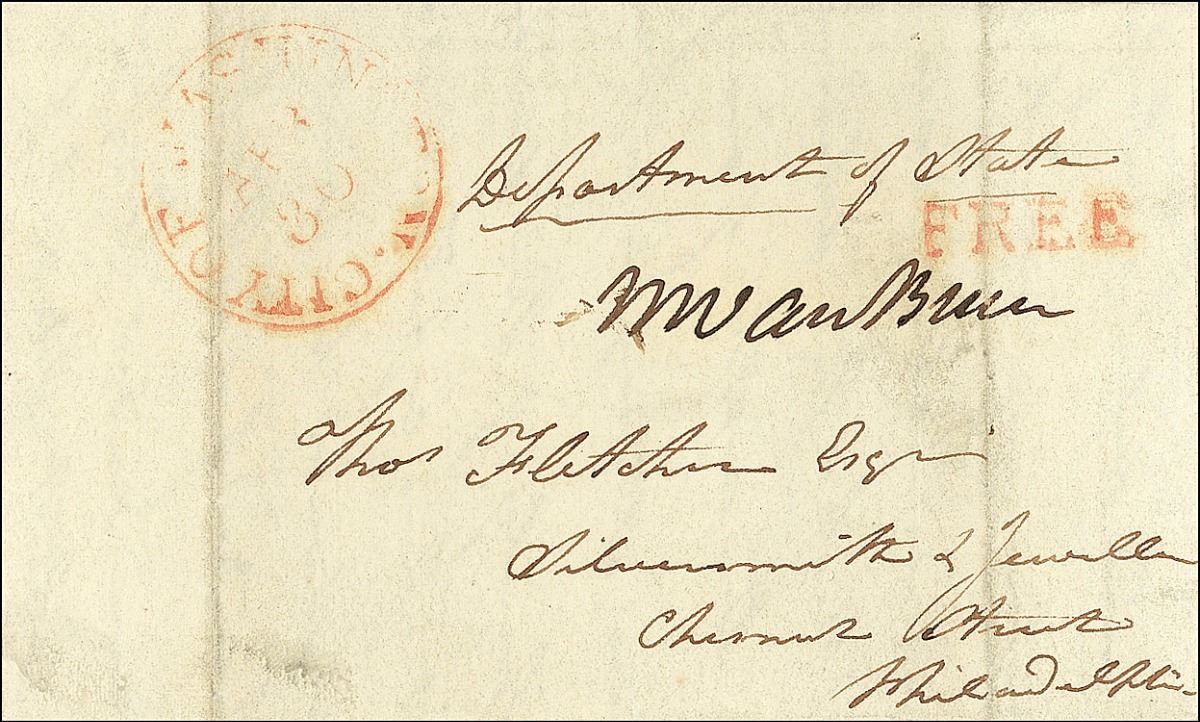 CITY OF WASHINGTON.
APR
30
Department of State
FREE
MVanBuren
Thos Fletcher Esqr
Silversmith & Jeweller
Chesnut Street
Philadelphia